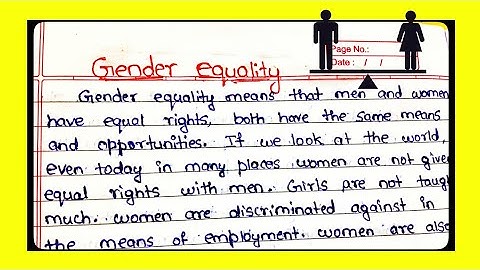 Page No.:
Date: / /
Gender equality
Gender equality means that men and women
have equal rights, both have the same means
and opportunities. If we look at the world,
even today in many places women are not give
equal rights with men. Girls are not taug
much. women are discriminated against in
the means of employment. women are also